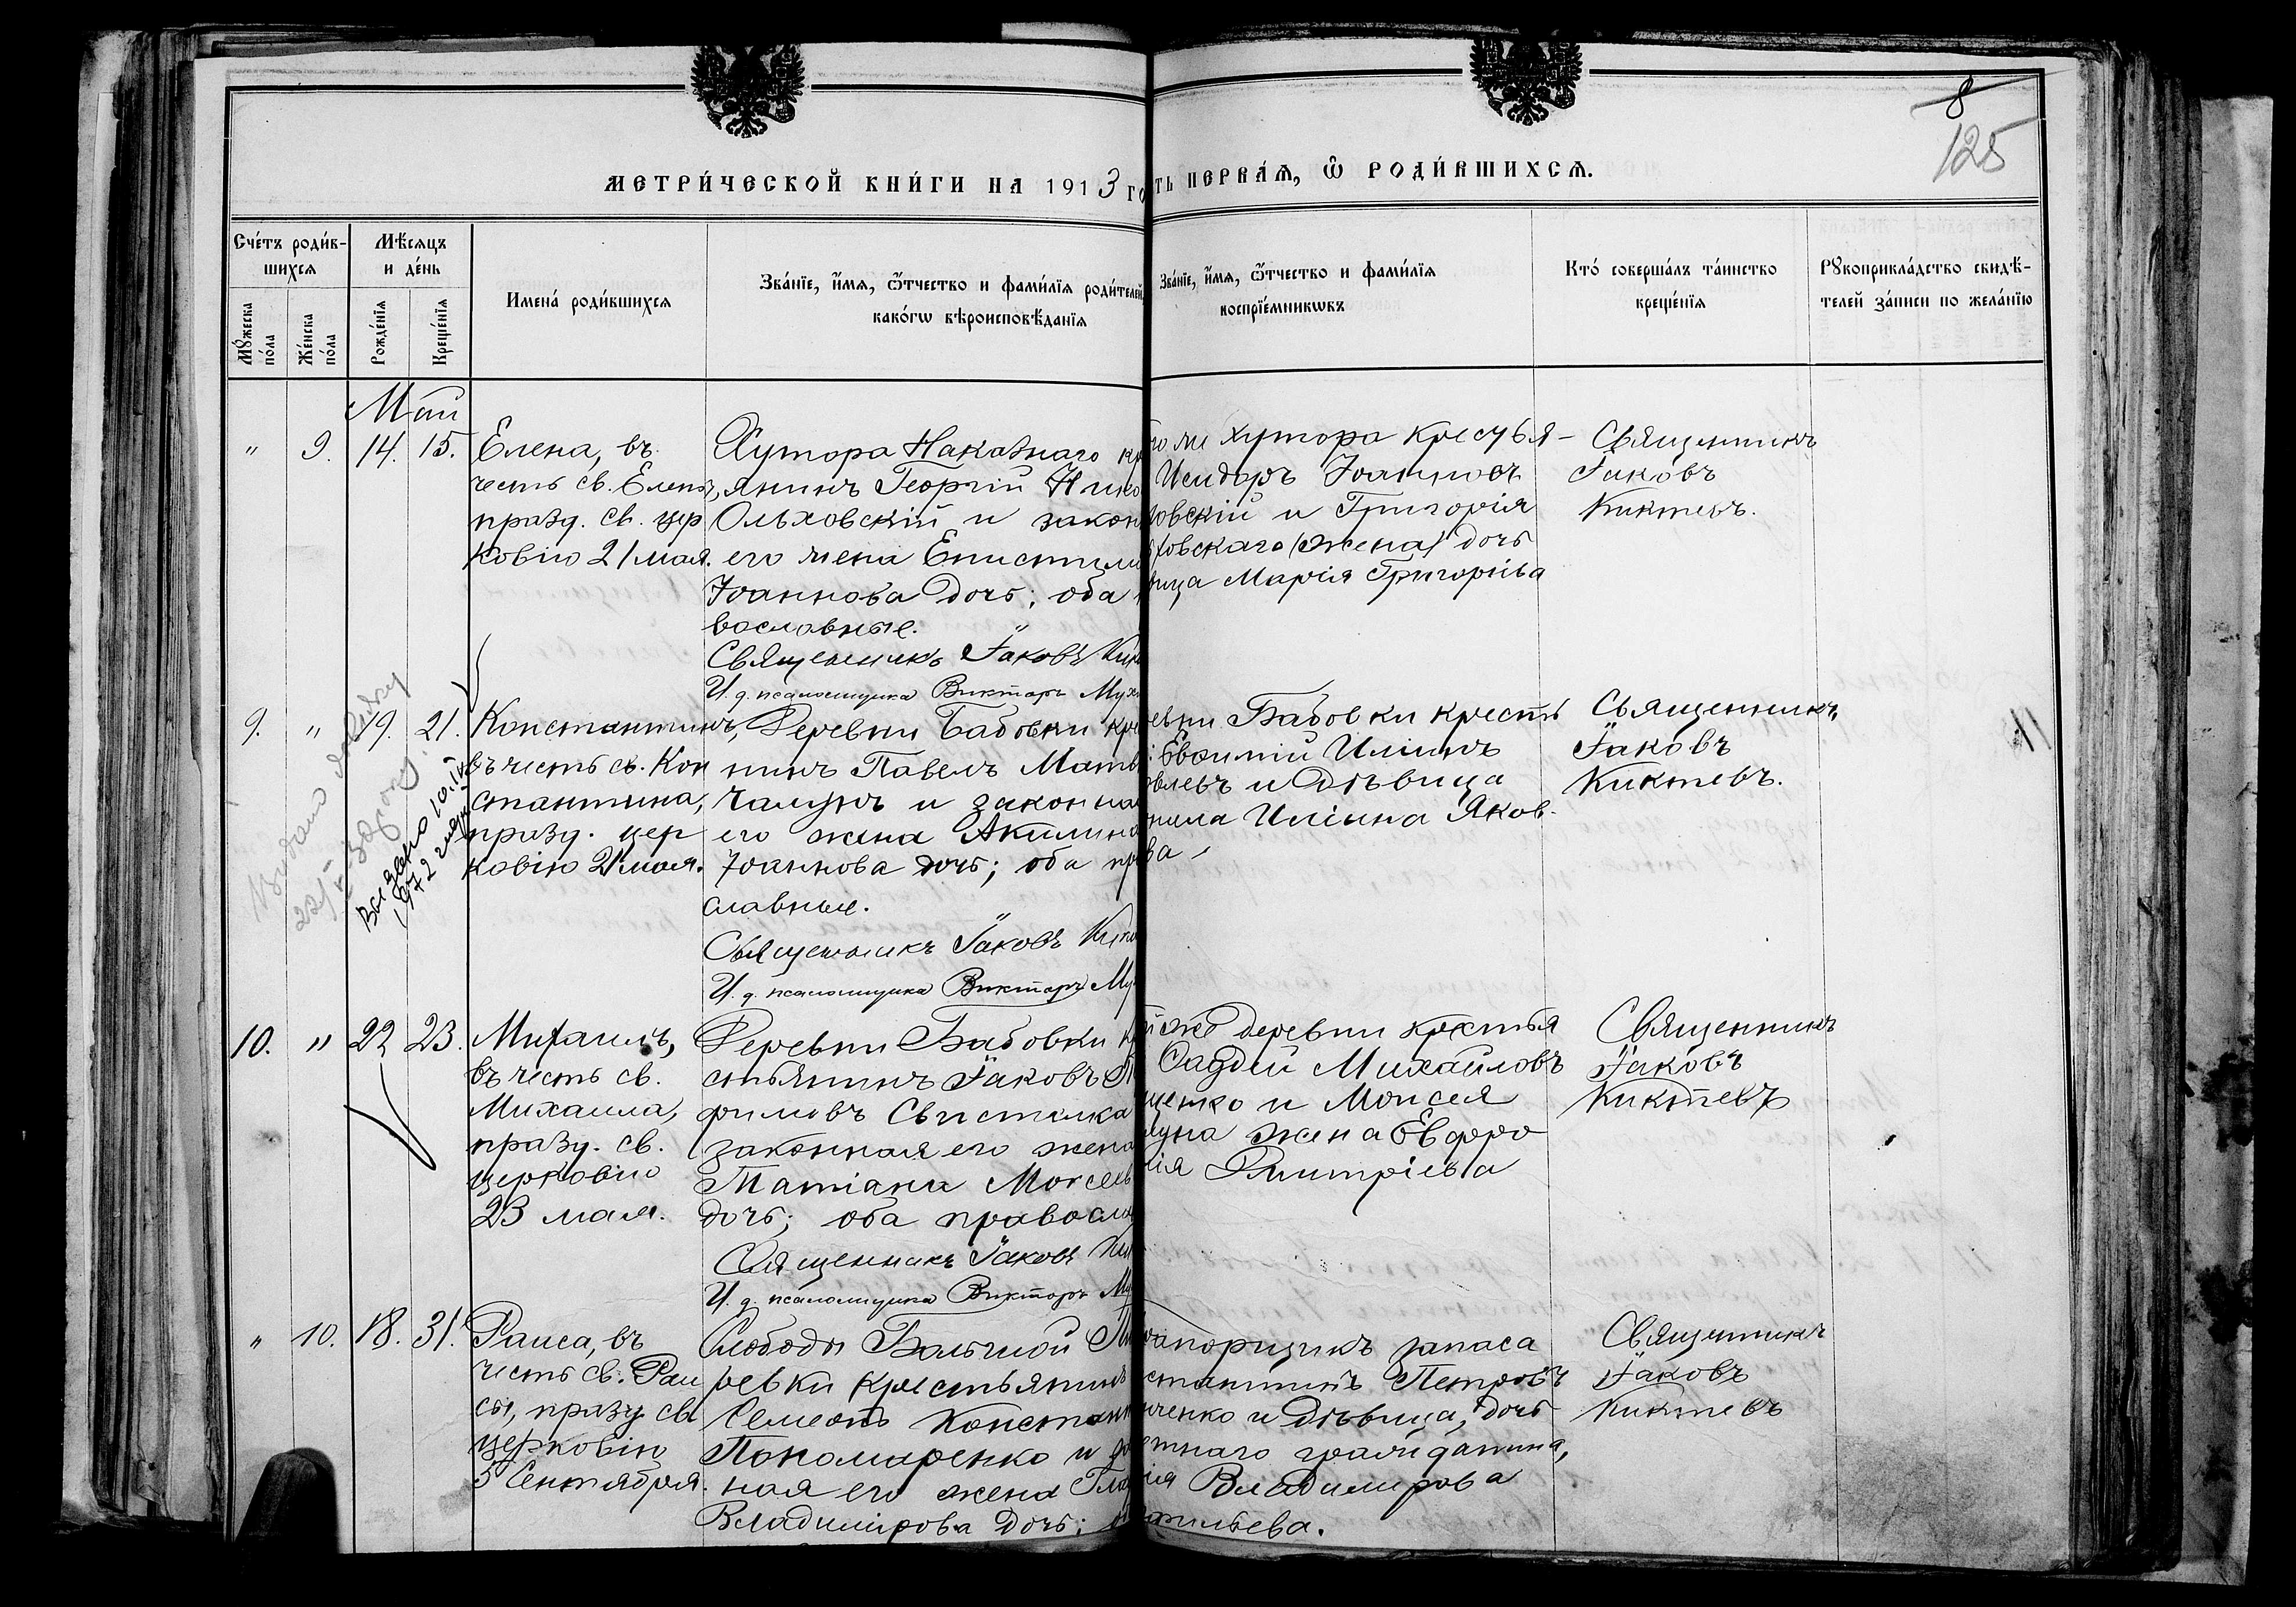 8
125
МЕТРИ́ЧЕСКОЙ КНИ́ГИ НА 1913 ГО
ТЬ ПЕРВА́Я, Ѿ РОДИ́ВШИХСЯ.
Сче́тъ роди́в-
шихся
Мѣ́сяцъ
и де́нь
Имена̀ роди́вшихся
Зва́нїе, и҆́мя, ѻ҆́тчество и фами́лїя роди́телей
како́гѡ вѣроисповѣ́данїя
Мꙋ́жеска
по́ла
Же́нска
по́ла
Рожде́нїя
Креще́нїя
Зва́нїе, и҆́мя, ѻ҆́тчество и фами́лїя
воспрїе́мникѡвъ
Кто̀ соверша́лъ та́инство
креще́нїя
Рꙋкоприкла́дство свидѣ́-
телей за́писи по жела́нїю
Май
" 9. 14. 15.
Елена, въ
честь св. Елены,
празд. св. цер
ковію 21 мая.
Хутора Наказнаго кр
янинъ Георгій Нико
Ольховскій и закон
его жена Епистими
Іоаннова дочь; оба
вославные.
Священникъ Іаковъ Кик
И. д. псаломщика Викторъ Мух
хутора кресть я-
Исидоръ Іоанновъ
овскій и Григорія
ховскаго (жена) дочь
вица Марія Григоріева
Священникъ
Іаковъ
Киктевъ.
Выдано
Выдано 10.IV
1972
9. " 19. 21.
Константинъ,
въ честь св. Кон
стантина,
празд. цер
ковію 21 мая.
Деревни Бабовки кре
нинъ Павелъ Матв
Чалунъ и законна
его жена Акилина
Іоаннова дочь; оба пр
славные.
Священникъ Іаковъ Кик
И. д. псаломщика Викторъ Му
евни Бабовки кресть
Евѳимій Иліинъ
овлевъ и дѣвица
нила Иліина Яков-
ва
Священникъ
Іаковъ
Киктевъ.
10. " 22 23.
Михаилъ,
въ честь св.
Михаила,
празд. св.
церковію
23 мая.
Деревни Бабовки кр
стьянинъ Іаковъ
фимовъ Свистилка
законная его жена
Татіана Моисеев
дочь; оба правосла
Священникъ Іаковъ Ки
И. д. псаломщика Викторъ Му
й же деревни крестья
Ѳаддей Михаиловъ
щенко и Моисея
луна жена Евфро
нія Димитріева
Священникъ
Іаковъ
Киктевъ
" 10. 18. 31.
Раиса, въ
честь св. Раи
сы, празд св
церковію
5 Сентября.
Слободы Большой
ревки крестьянинъ
Симеонъ Констант
Пономаренко и за
ная его жена Гла
Владимірова дочь;
апорщикъ запаса
стантинъ Петровъ
нченко и дѣвица, дочь
етнаго гражданина,
ія Владимірова
сильева.
Священникъ
Іаковъ
Киктевъ